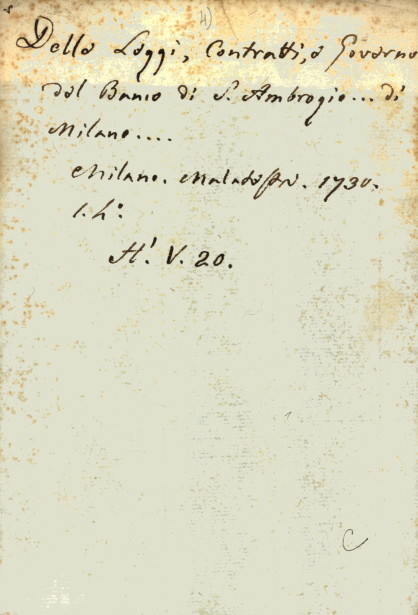 4)
Delle Leggi, Contratti, e Governo
del Banco di S. Ambrogio... di
Milano....
Milano. Malatesta. 1730.
1. h.º
H! V. 20.
C